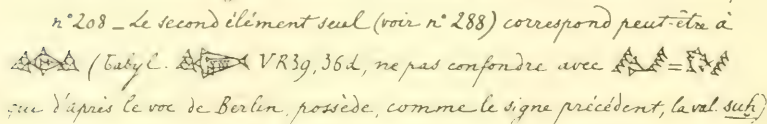 n° 208 _ Le second élément seul (voir n° 288) correspond peut-être à
(Babyl. VR 39, 36d, ne pas confondre avec =
que d'après le voc de Berlin, possède, comme le signe précédent, la val. suh)